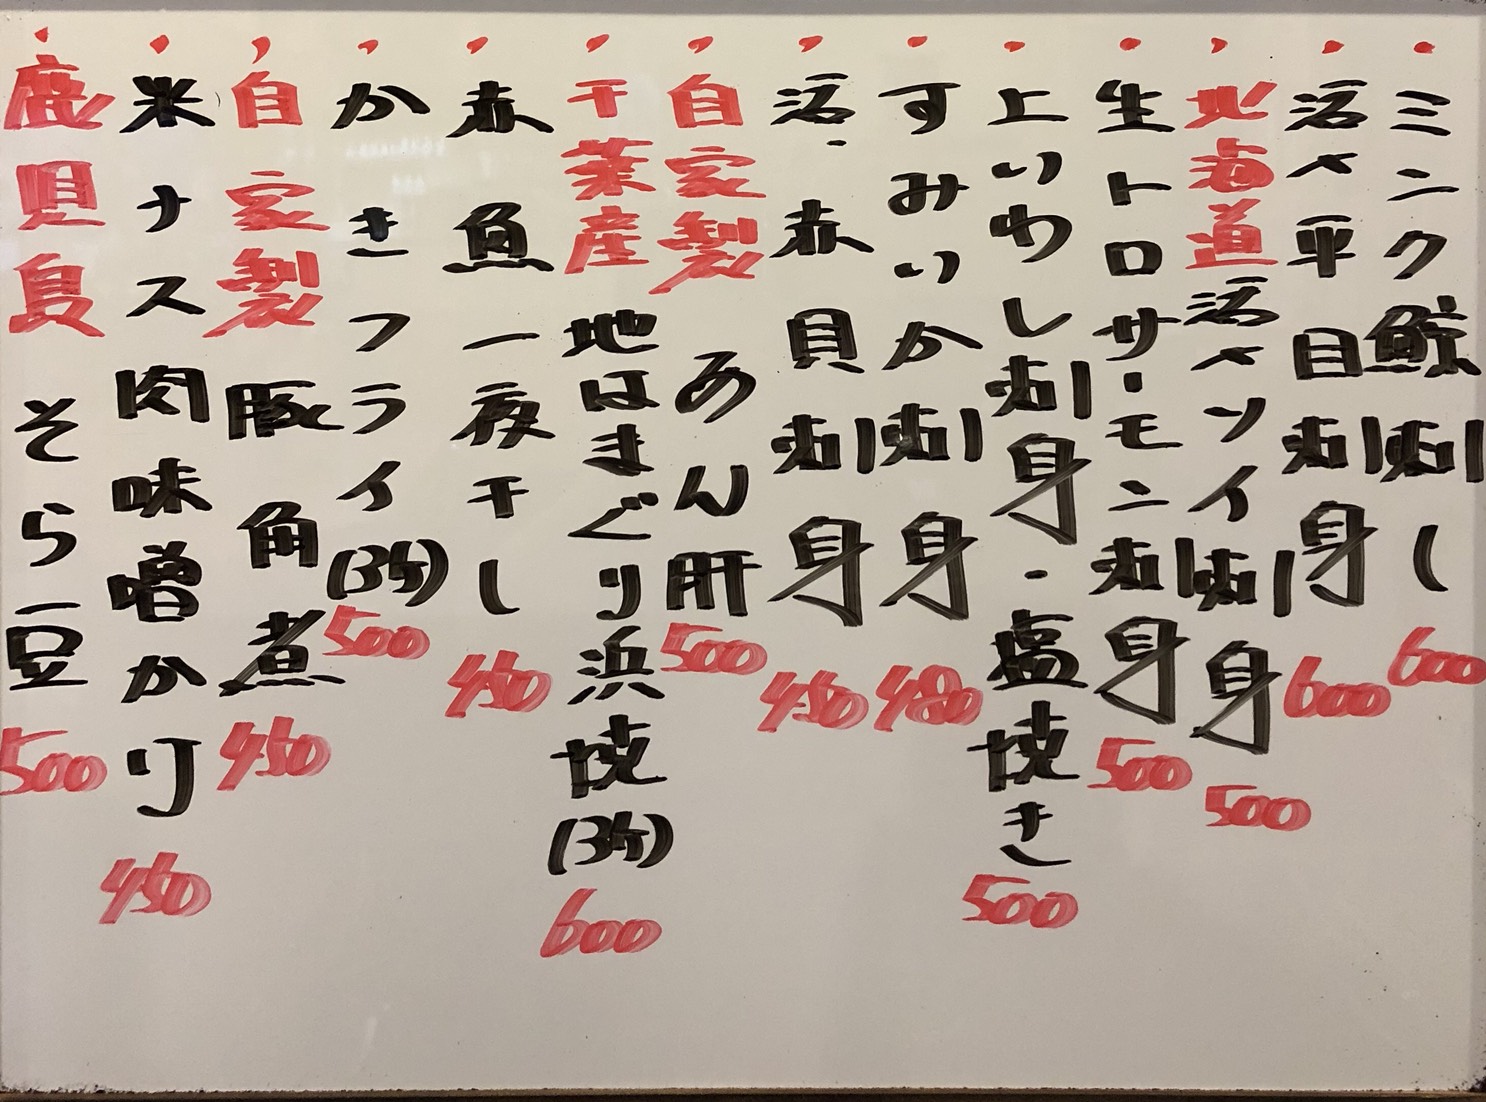 ミンク鯨刺し 600
活〆平目刺身 600
北海道活〆ソイ刺身 500
生トロサーモン刺身 500
上いわし刺身・塩焼き 500
すみいか刺身 480
活・赤貝刺身 450
自家製あん肝 500
千葉産地はまぐり浜焼(3ケ) 600
赤魚一夜干し 450
かきフライ(3ケ) 500
自家製豚角煮 450
米ナス肉味噌かけ 450
鹿児島そら豆 500